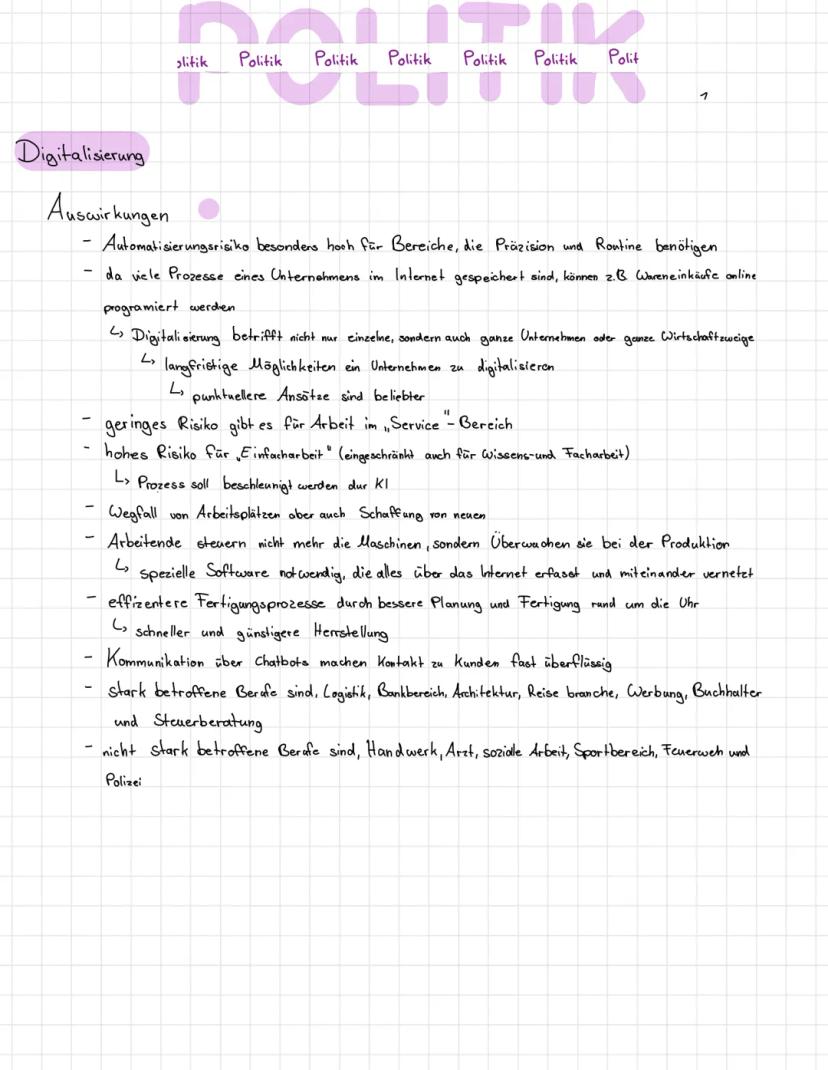 POLITIK
olitik Politik Politik Politik Politik Politik Polit
1
Digitalisierung
Auswirkungen
- Automatisierungsrisiko besonders hoch für Bereiche, die Präzision und Routine benötigen
- da viele Prozesse eines Unternehmens im Internet gespeichert sind, können z.B Wareneinkäufe online
programiert werden
↳ Digitalisierung betrifft nicht nur einzelne, sondern auch ganze Unternehmen oder ganze Wirtschaftzweige
↳ langfristige Möglichkeiten ein Unternehmen zu digitalisieren
↳ punktuellere Ansätze sind beliebter
- geringes Risiko gibt es für Arbeit im „Service"- Bereich
- hohes Risiko für „Einfacharbeit" (eingeschränkt auch für Wissens-und Facharbeit)
↳ Prozess soll beschleunigt werden dur KI
- Wegfall von Arbeitsplätzen aber auch Schaffung von neuen
- Arbeitende steuern nicht mehr die Maschinen, sondern Überwachen sie bei der Produktion
↳ spezielle Software notwendig, die alles über das Internet erfasst und miteinander vernetzt
- effizentere Fertigungsprozesse durch bessere Planung und Fertigung rund um die Uhr
↳ schneller und günstigere Herrstellung
- Kommunikation über Chatbots machen Kontakt zu Kunden fast überflüssig
- stark betroffene Berufe sind, Logistik, Bankbereich, Architektur, Reise branche, Werbung, Buchhalter
und Steuerberatung
- nicht stark betroffene Berufe sind, Handwerk, Arzt, soziale Arbeit, Sportbereich, Feuerweh und
Polizei